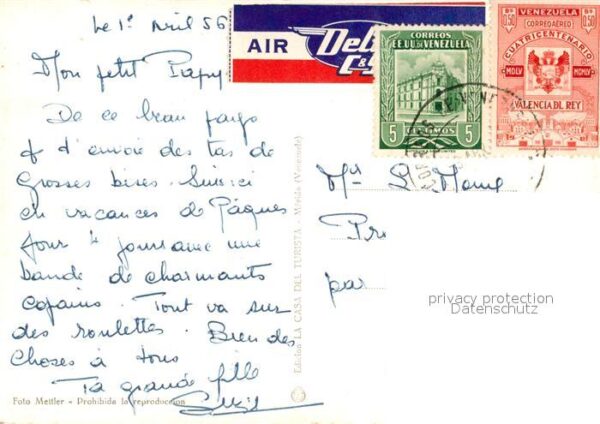 Le 1er Avril 56
Mon petit Papy
De ce beau pays
je t'envoie des tas de
grosses bises. Suis ici
en vacances de Pâques
pour 4 jours avec une
bande de charmants
copains. Tout va sur
des roulettes. Bien des
choses à tous
Ta grande fille
Foto Mettler - Prohibida la reproduccion
Edicion LA CASA DEL TURISTA - Mérida (Venezuela)
AIR
Delta
C&S
CORREOS
EE.UU. DE VENEZUELA
5 CENTIMOS 5
VENEZUELA
Bs 0,50 CORREO AEREO Bs 0,50
CUATRICENTENARIO
MDLV MCMLV
VALENCIA DEL REY
Pre
par
privacy protection
Datenschutz